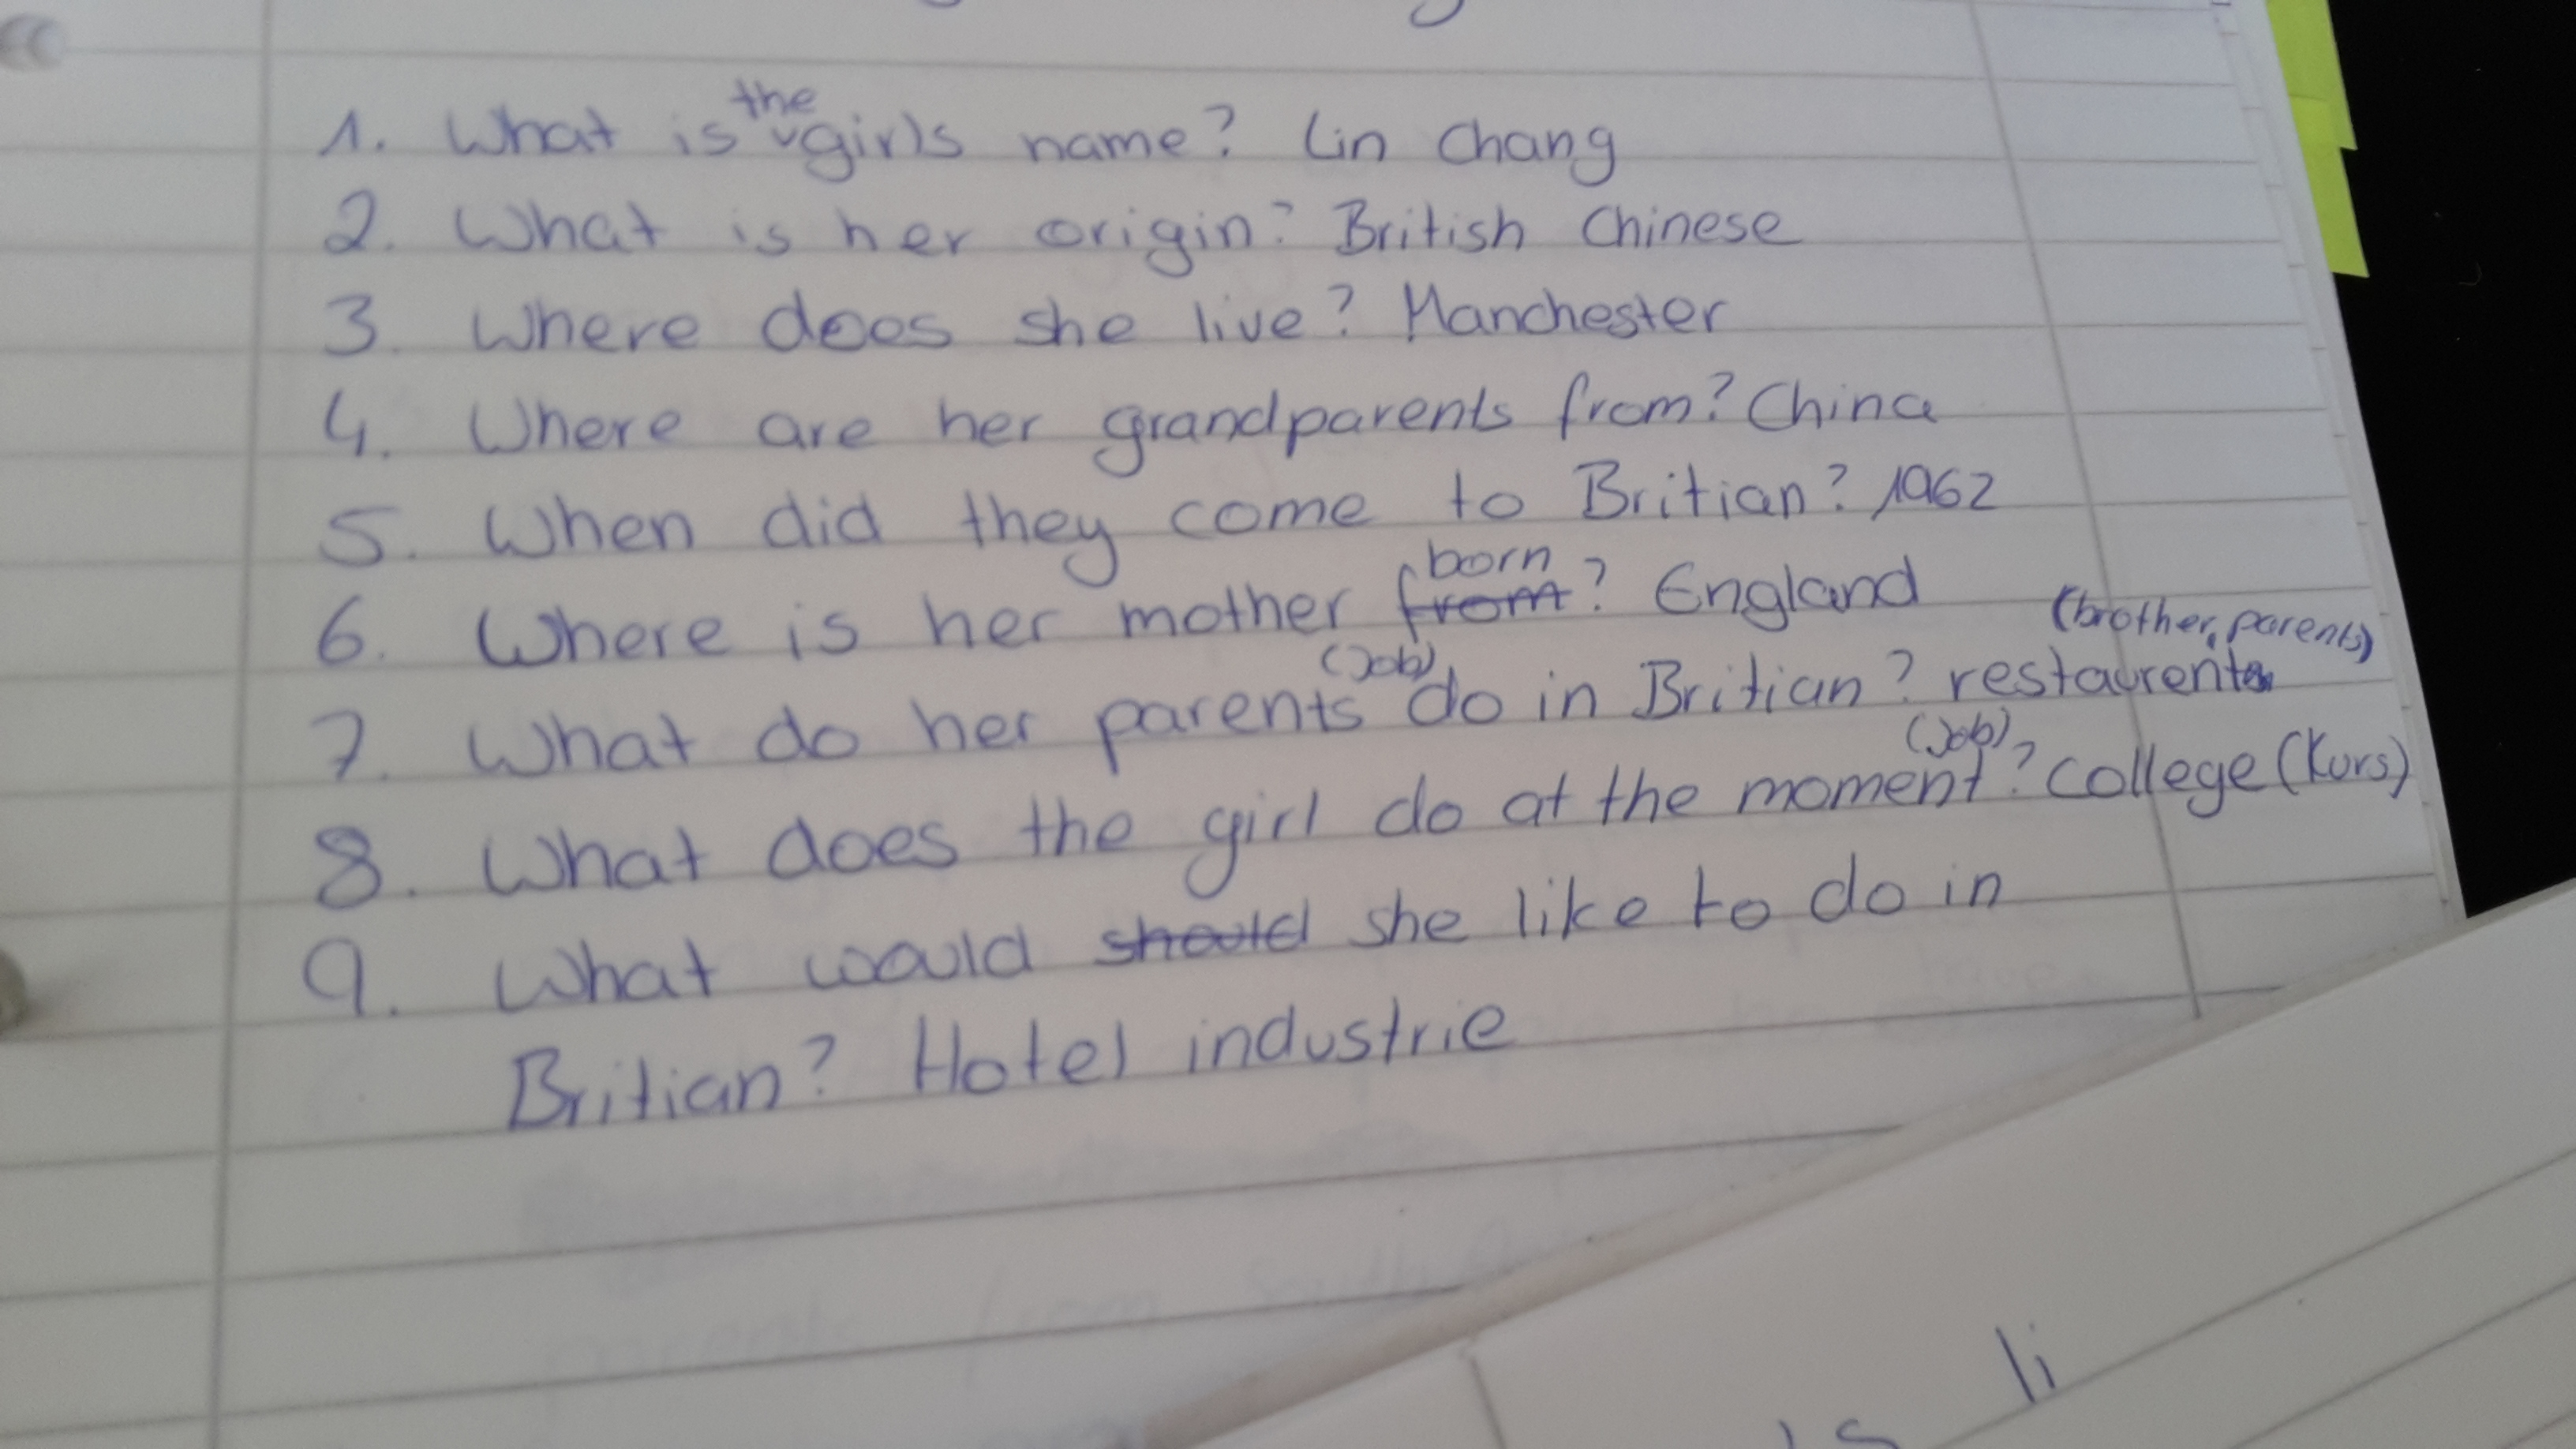 1. What is the girls name? Lin Chang
2. What is her origin? British Chinese
3. Where does she live? Manchester
4. Where are her grandparents from? China
5. When did they come to Britian? 1962
6. Where is her mother from born? England
(brother, parents)
7. What do her parents (Job) do in Britian? restaurent
8. What does the girl do at the moment (Job)? College (Kurs)
9. What would should she like to do in
Britian? Hotel industrie
li